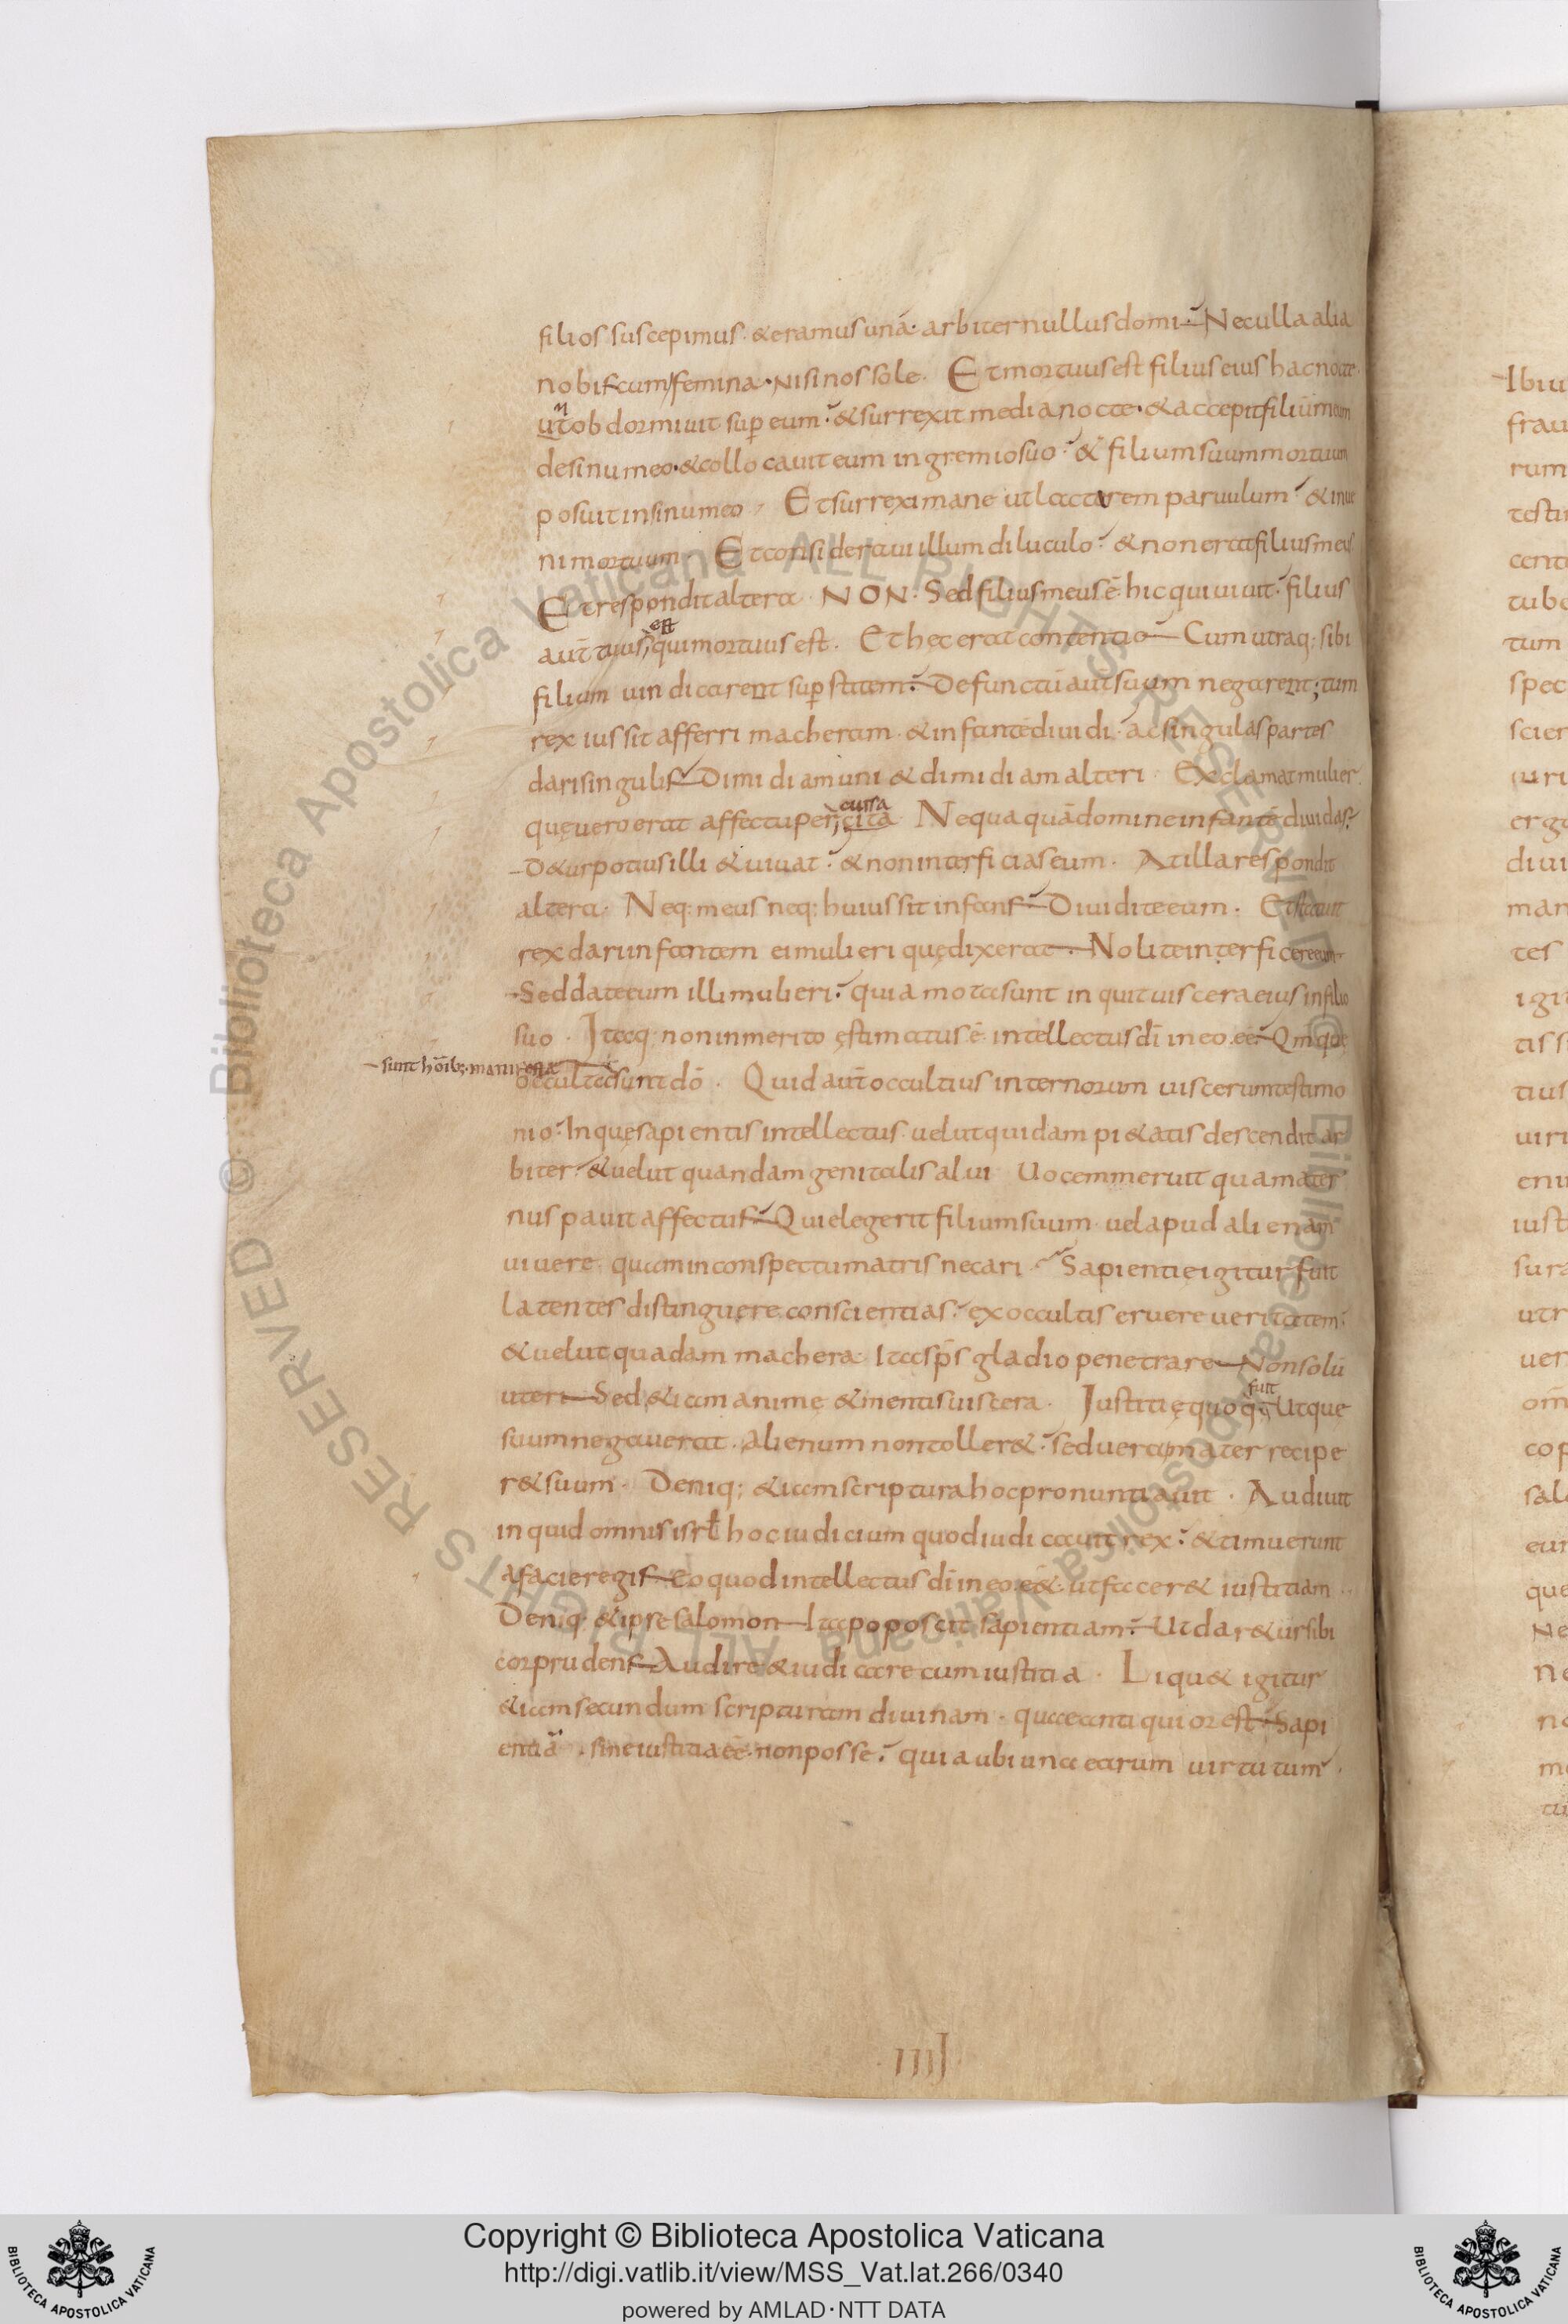 filios suscepimus · & eramus unā · arbiter nullus domi · Nec ulla alia
nobis cum femina · nisi nos sole · Et mortuus est filius eius hac nocte ·
ut obdormiuit sup eum · & surrexit media nocte · & accepit filiū meum
de sinu meo · & collocauit eum in gremio suo · & filium suum mortuum
posuit in sinu meo · Et surrexi mane ut lactarem paruulum · & inue
ni mortuum · Et consideraui illum diluculo · & non erat filius meus
Et respondit altera · NON · Sed filius meus ē hic qui uiuit · filius
est
aūt tuus, qui mortuus est · Et hęc erat contentio Cum utraq; sibi
filium uindicarent sup̱stitem · Defunctū aūt suum negarent; tum
rex iussit afferri macheram · & infantē diuidi · ac singulas partes
dari singulis Dimidiam uni & dimidiam alteri · Exclamat mulier
cussa
quę uero erat affectu percita Nequaquā domine infantē diuidas
D&ur potius illi & uiuat · & non interficias eum · At illa respondit
altera · Neq; meus neq; huius sit infans Diuidite eum · Et statuit
rex dari infantem ei mulieri quę dixerat · Nolite interficere eum
Sed date eum illi mulieri · quia mota sunt inquit uiscera eius in filio
suo · Itaq; non inmerito ęstimatus ē intellectus dī in eo eē · Qm̄ quę
sunt hōib;
occulta sunt dō · Quid aūt occultius internorum uiscerum testimo
nio · In quę sapientis intellectus uelut quidam pi&atis descendit ar
biter · & uelut quandam genitalis alui uocem meruit qua mater
nus pauit affectus Qui elegerit filium suum uel apud alienam
uiuere quam in conspectu matris necari · Sapientię igitur fuit
latentes distinguere conscientias · ex occultis eruere ueritatem ·
& uelut quadam machera Ita sps̄ gladio penetrare Non solū
uteri Sed & iam animę & mentis uiscera · Iustitię quoq; ut que
fuit
suum negauerat · alienum non toller& · sed uera mater recipe
r& suum · Deniq; & iam scriptura hoc pronuntiauit · Audiuit
inquid omnis isrł hoc iudicium quod iudicauit rex · & timuerunt
a facie regis Eo quod intellectus dī in eo eē& ut facer& iustitiam ·
Deniq; & ipse salomon Ita poposcit sapientiam · Ut dar&ur sibi
cor prudens Audire & iudicare cum iustitia · Liqu& igitur
& iam secundum scripturam diuinam · quae antiquior est Sapi
entiā · sine iustitia eē non posse · quia ubi una earum uirtutum ·
IIII
Copyright © Biblioteca Apostolica Vaticana
http://digi.vatlib.it/view/MSS_Vat.lat.266/0340
powered by AMLAD · NTT DATA
BIBLIOTECA APOSTOLICA VATICANA
BIBLIOTECA APOSTOLICA VATICANA